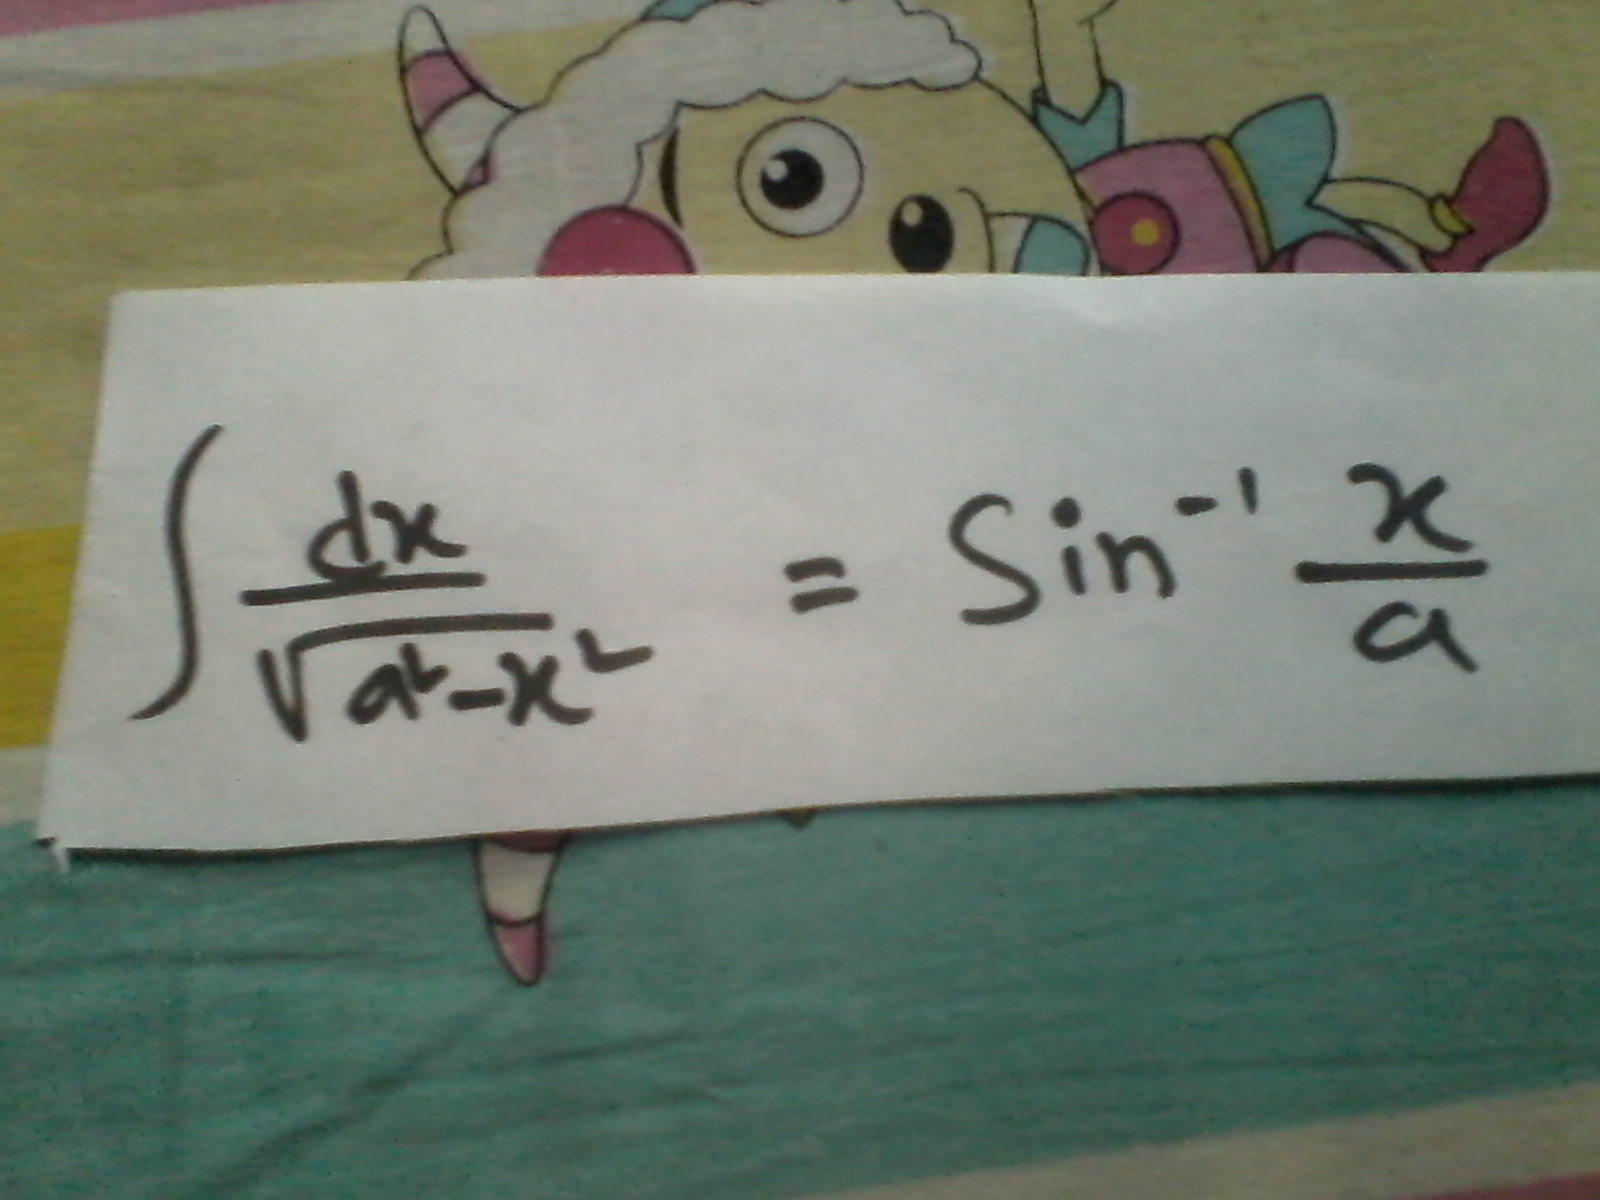 ∫ dx/√(a² - x²) = Sin⁻¹ x/a